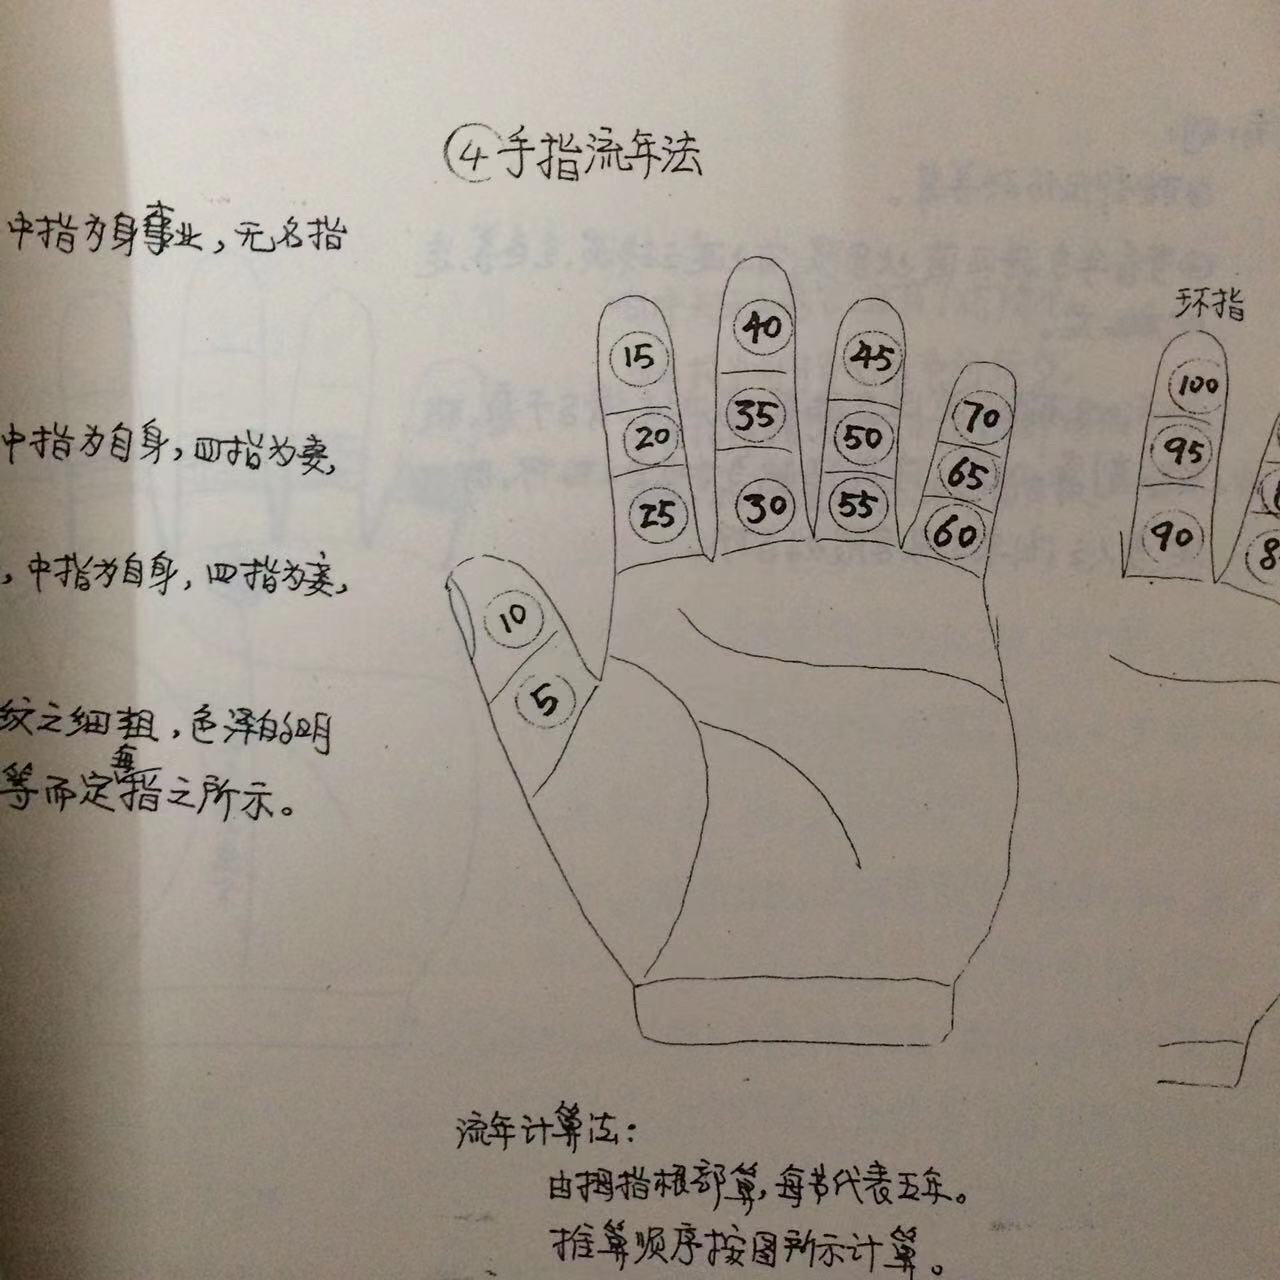 ④手指流年法
中指为身事业，无名指
中指为自身，四指为妻，
，中指为自身，四指为妻，
纹之细粗，色泽的明
等而定每指之所示。
40
15
45
35
20
50
70
65
25
30
55
60
10
5
环指
100
95
90
8
流年计算法：
由拇指根部算，每节代表五年。
推算顺序按图所示计算。